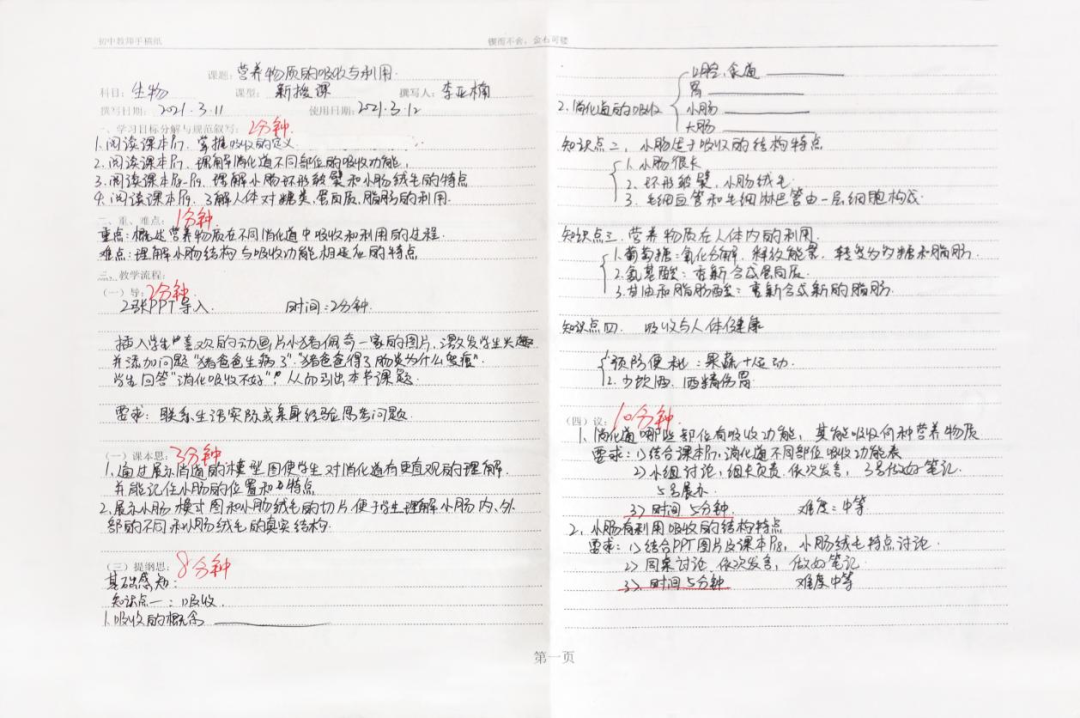 初中教师手稿纸
锲而不舍，金石可镂
课题：营养物质的吸收与利用.
科目：生物 课型：新授课 撰写人：李亚楠
撰写日期：2021.3.11 使用日期：2021.3.12
一、学习目标分解与规范叙写：2分钟.
1.阅读课本P17，掌握吸收的定义
2.阅读课本P17，理解消化道不同部位的吸收功能，
3.阅读课本P18-P19，理解小肠环形皱襞和小肠绒毛的特点
4.阅读课本P19，了解人体对糖类,蛋白质,脂肪的利用.
二、重、难点：1分钟
重点：概述营养物质在不同消化道中吸收和利用的过程.
难点：理解小肠结构与吸收功能相适应的特点
三、教学流程：
（一）导：2分钟
2张PPT导入. 时间：2分钟.
插入学生喜欢的动画片小猪佩奇一家的图片，激发学生兴趣
并添加问题“猪爸爸生病了”“猪爸爸得了肠炎为什么变瘦”
学生回答“消化吸收不好”？从而引出本节课题.
要求：联系生活实际或亲身经验思考问题.
（一）课本思：3分钟
1.通过展示消化道的模型图使学生对消化道有更直观的理解.
并能记住小肠的位置和特点
2.展示小肠模式图和小肠绒毛的切片便于学生理解小肠内、外
部的不同和小肠绒毛的真实结构.
（三）提纲思：8分钟
基础感知：
知识点一：吸收.
1.吸收的概念
口腔、食道
胃
2.消化道的吸收 小肠
大肠
知识点二、小肠适于吸收的结构特点
1.小肠很长
2.环形皱襞，小肠绒毛
3.毛细血管和毛细淋巴管由一层细胞构成.
知识点三、营养物质在人体内的利用.
1.葡萄糖：氧化分解，释放能量，转变为多糖和脂肪.
2.氨基酸：重新合成蛋白质.
3.甘油和脂肪酸：重新合成新的脂肪.
知识点四、吸收与人体健康
1.预防便秘：果蔬+运动.
2.少饮酒.酒精伤胃.
（四）议：10分钟.
1、消化道哪些部位有吸收功能，其能吸收何种营养物质
要求：1>结合课本P17，消化道不同部位吸收功能表
2>小组讨论，组长负责，依次发言，3号做好笔记.
5号展示.
3>时间 5分钟. 难度：中等
2、小肠有利用吸收的结构特点
要求：1>结合PPT图片及课本P18，小肠绒毛特点讨论.
2>同桌讨论，依次发言，做好笔记
3>时间5分钟 难度中等
第一页